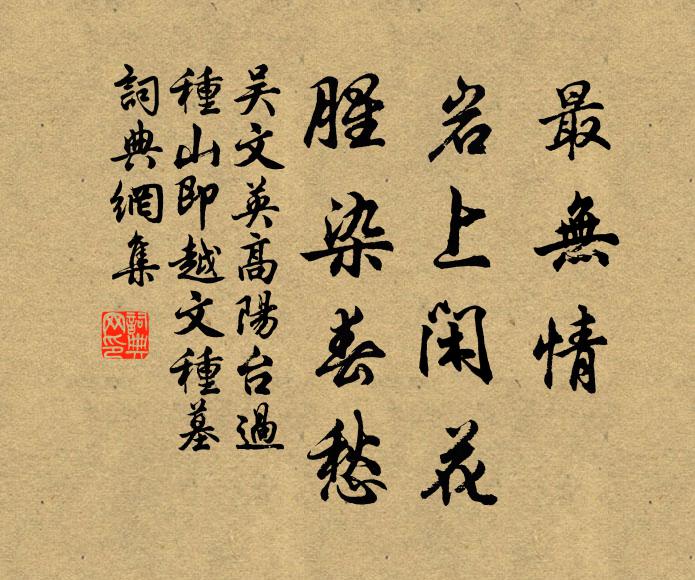 最無情
岩上閑花
腥染春愁
吴文英高陽台過
種山即越文種墓
詞典網集
詞典網印